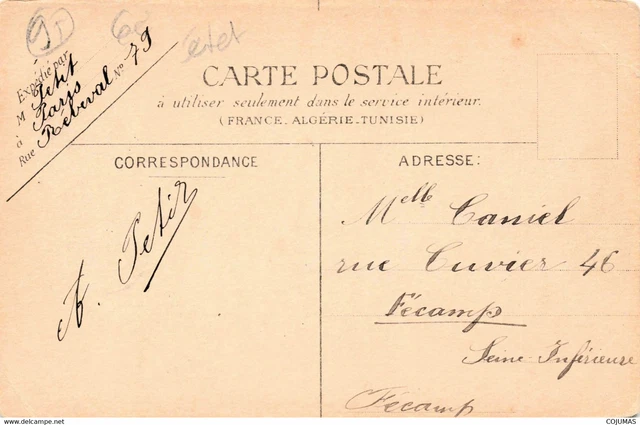 95
60
Expédié par
M Petit
à Paris
Rue Rébeval N° 79
CARTE POSTALE
à utiliser seulement dans le service intérieur.
(FRANCE-ALGÉRIE-TUNISIE)
CORRESPONDANCE
ADRESSE:
A. Petit
Melle Caniel
rue Cuvier 46
Fécamp
Seine Inférieure
Fécamp
www.delcampe.net
COJUMAS